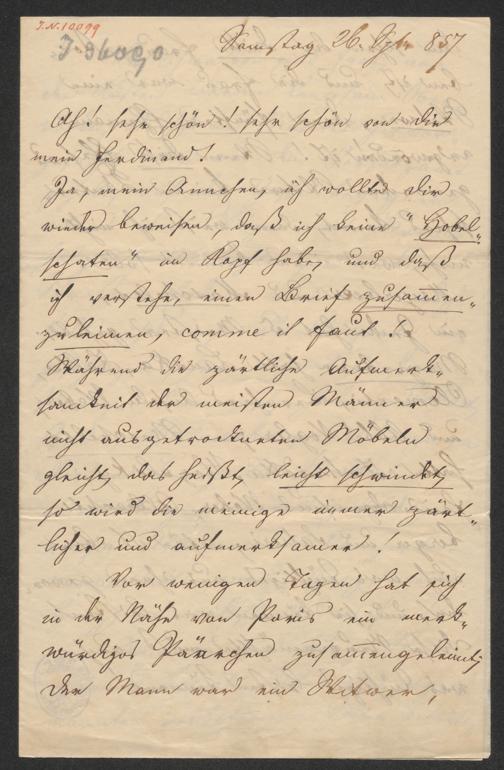 J.N. 10099
Samstag 26. Spt. 857
Ah! sehr schön! sehr schön von dir
mein Ferdinand!
Ja, mein Annchen, ich wollte dir
wieder beweisen, daß ich keine "Hobel„
schaten" im Kopf habe, und daß
ich verstehe, einen Brief zusammen„
zuleimen, comme il faut!
Während die zärtliche Aufmerk„
samkeit der meisten Männer
nicht ausgetrockneten Möbeln
gleicht, das heißt, leicht schwindet,
so wird die meinige immer zärt„
licher und aufmerksamer!
Vor wenigen Tagen hat sich
in der Nähe von Paris ein merk„
würdiges Pärchen zusammengeleimt;
Der Mann war ein Witwer,